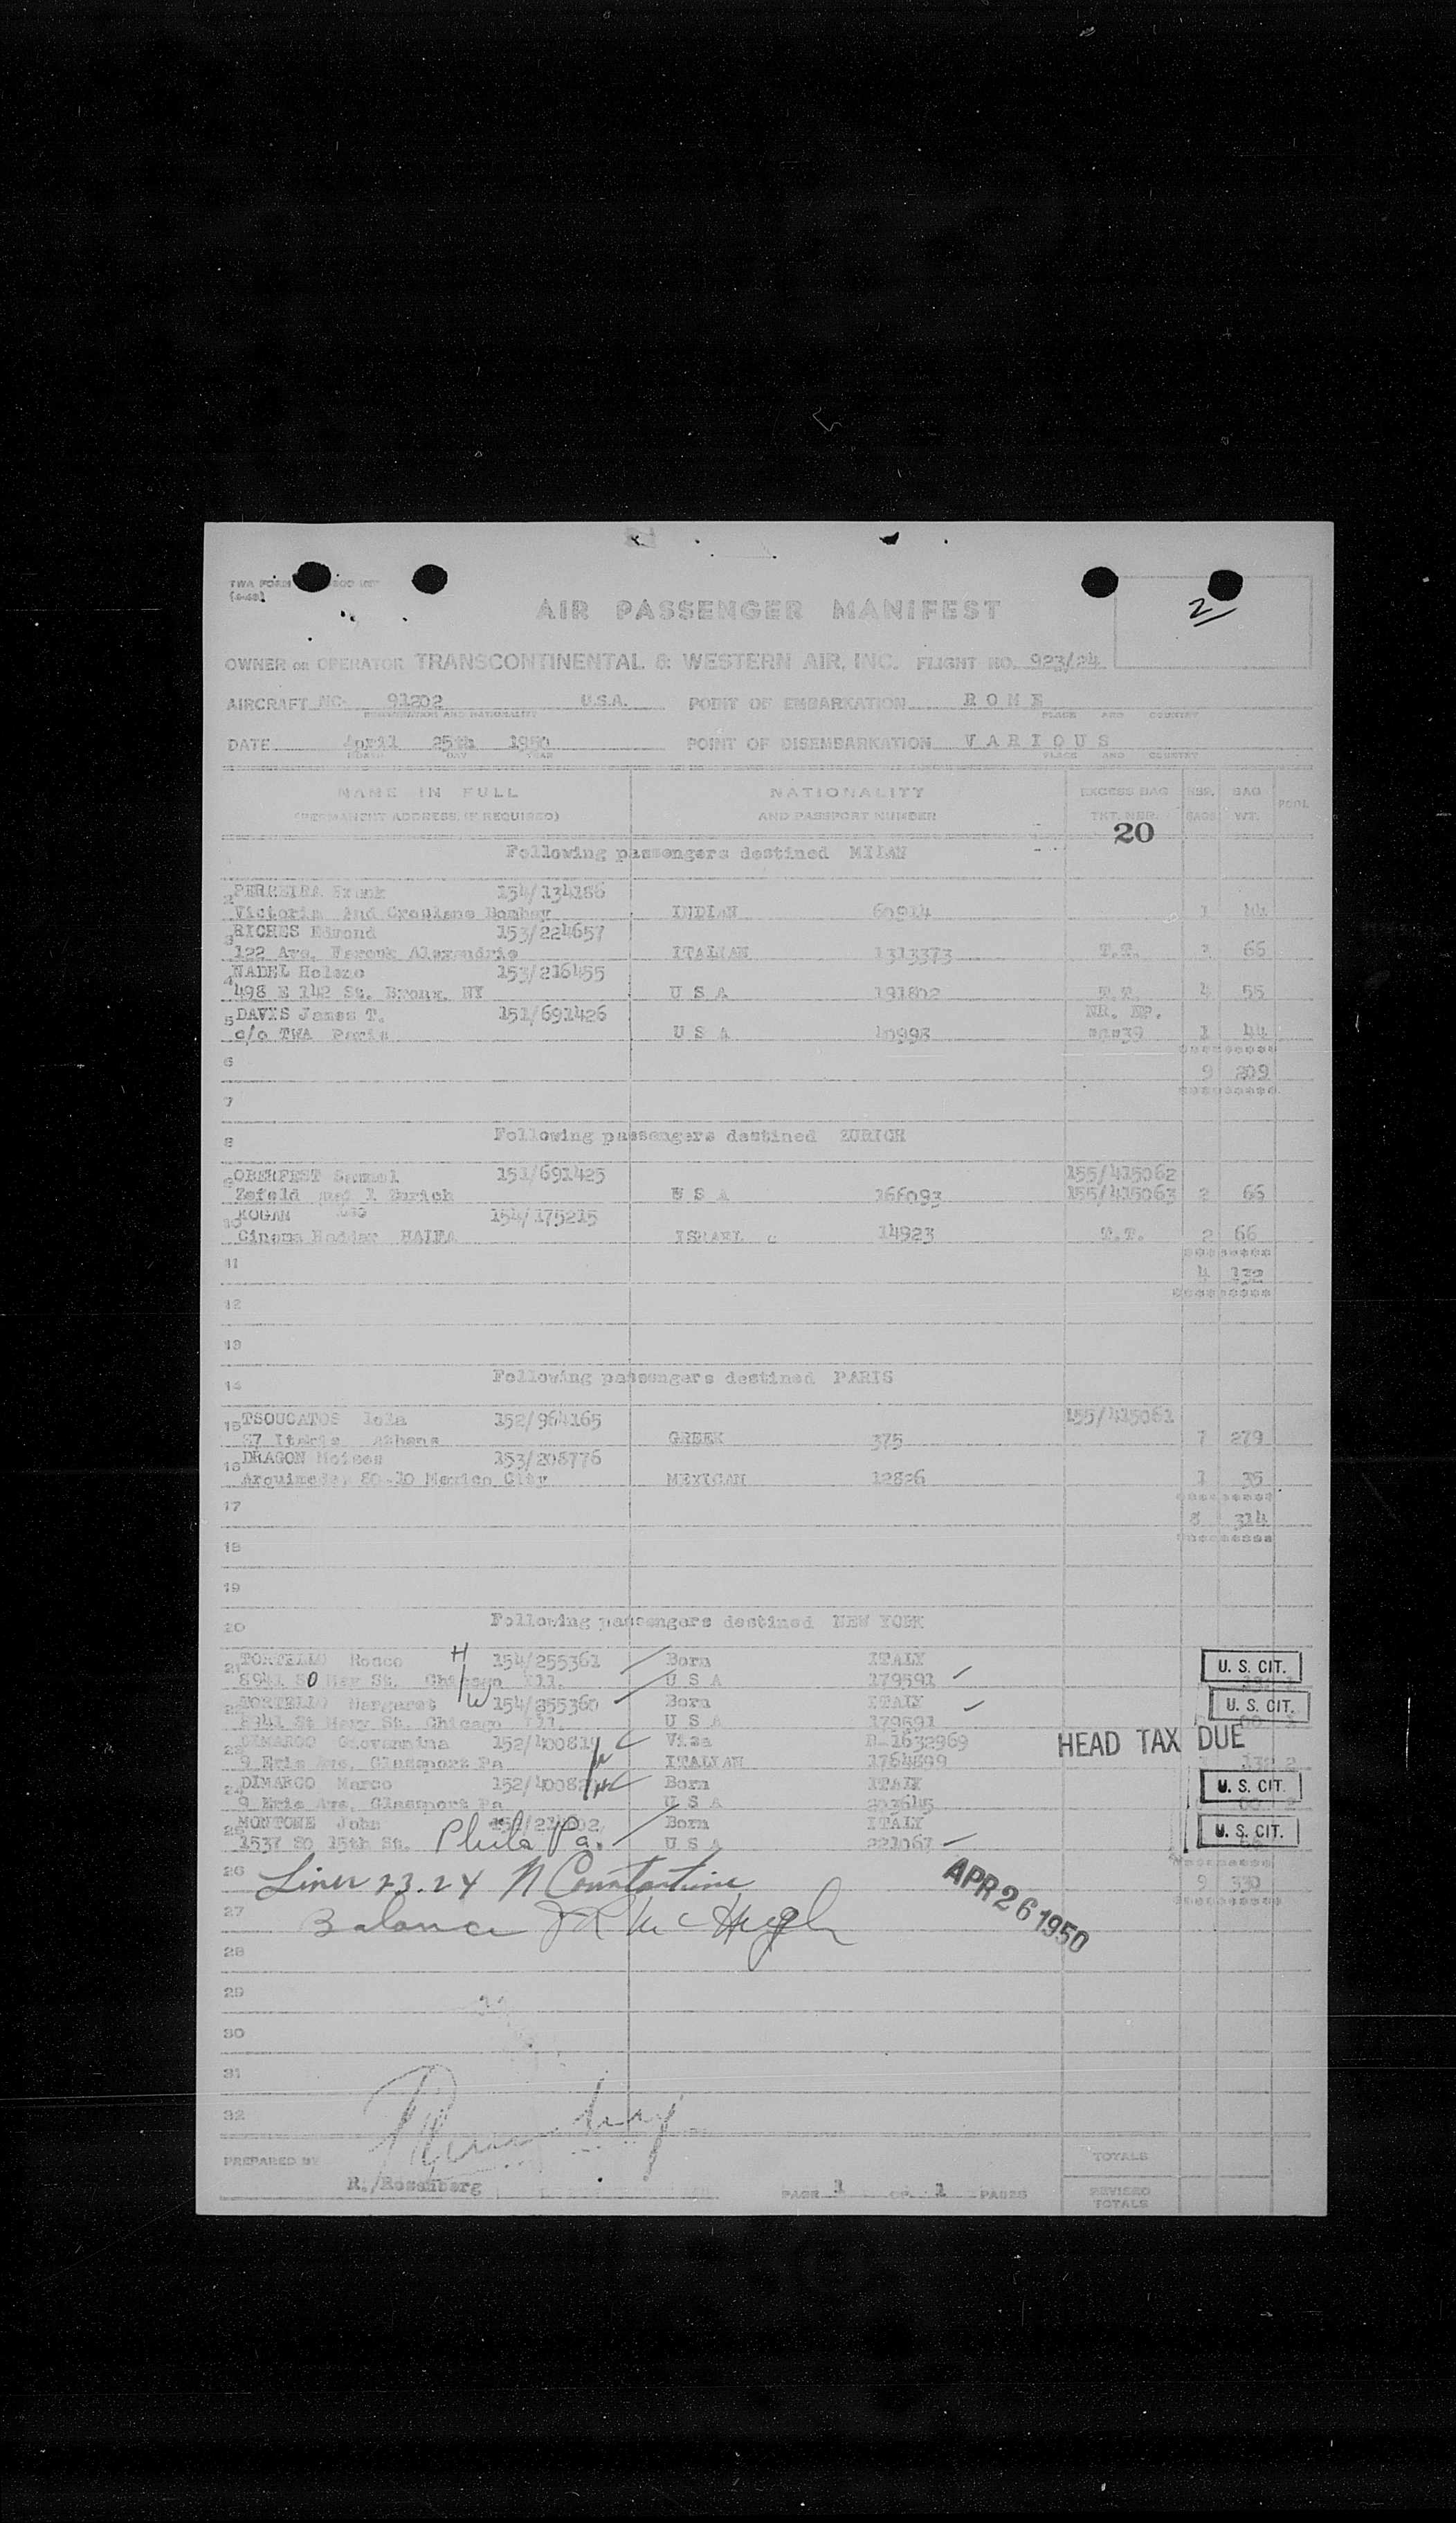 TWA FORM
AIR PASSENGER MANIFEST
2
OWNER OR OPERATOR TRANSCONTINENTAL & WESTERN AIR, INC. FLIGHT NO. 923/24
AIRCRAFT NC- 91202 U.S.A. POINT OF EMBARKATION ROME
REGISTRATION AND NATIONALITY PLACE AND COUNTRY
DATE April 25th 1950 POINT OF DISEMBARKATION VARIOUS
MONTH DAY YEAR PLACE AND COUNTRY
NAME IN FULL NATIONALITY EXCESS BAG NBR. BAG POOL
(PERMANENT ADDRESS, IF REQUIRED) AND PASSPORT NUMBER TKT. NBR. BAGS WT.
20
Following passengers destined MILAN
2 PERREIRA Frank 154/134186
Victoria Bombay INDIAN 60914 1 44
3 RICHES Edmond 153/224657
122 Ave. Farouk Alexandrie ITALIAN 1313373 T.T. 3 66
4 NADEL Helene 153/216455
498 E 142 St. Bronx, NY U S A 191802 T.T. 4 55
5 DAVIS James T. 151/691426 NR. EP.
c/o TWA Paris U S A 40998 1 44
6
9 209
7
8 Following passengers destined ZURICH
9 OBERFEST Samuel 151/691425 155/415062
Zurich U S A 166093 155/415063 2 66
10 KOGAN 154/175215
Cinema Haddar HAIFA ISRAEL 14923 T.T. 2 66
11
4 132
12
13
14 Following passengers destined PARIS
15 TSOUCATOS Iola 152/964165 155/415061
Athens GREEK 375 7 279
16 DRAGON Moises 153/208776
Arquimedes 80-10 Mexico City MEXICAN 12826 1 35
17
8 314
18
19
20 Following passengers destined NEW YORK
21 TORTELLO Rocco H 154/255361 Born ITALY U. S. CIT.
8941 So May St. Chicago Ill. U S A 179591
22 TORTELLO Margaret W 154/255360 Born ITALY U. S. CIT.
8941 St Mary St. Chicago Ill. U S A 179591
23 DIMARCO Giovannina 152/400819 Visa 1632969 HEAD TAX DUE
9 Erie Ave, Glassport Pa ITALIAN 1764899
24 DIMARCO Marco Born ITALY U. S. CIT.
9 Erie Ave, Glassport Pa U S A 203645
25 MONTONE John Born ITALY U. S. CIT.
1537 So 15th St. Phila Pa. U S A 221067
26 Lines 23.24 N Constantine APR 26 1950 9 330
27 Balance McHugh
28
29
30
31
32
PREPARED BY TOTALS
R./Rosenberg PAGE 1 OF 1 PAGES REVISED
TOTALS